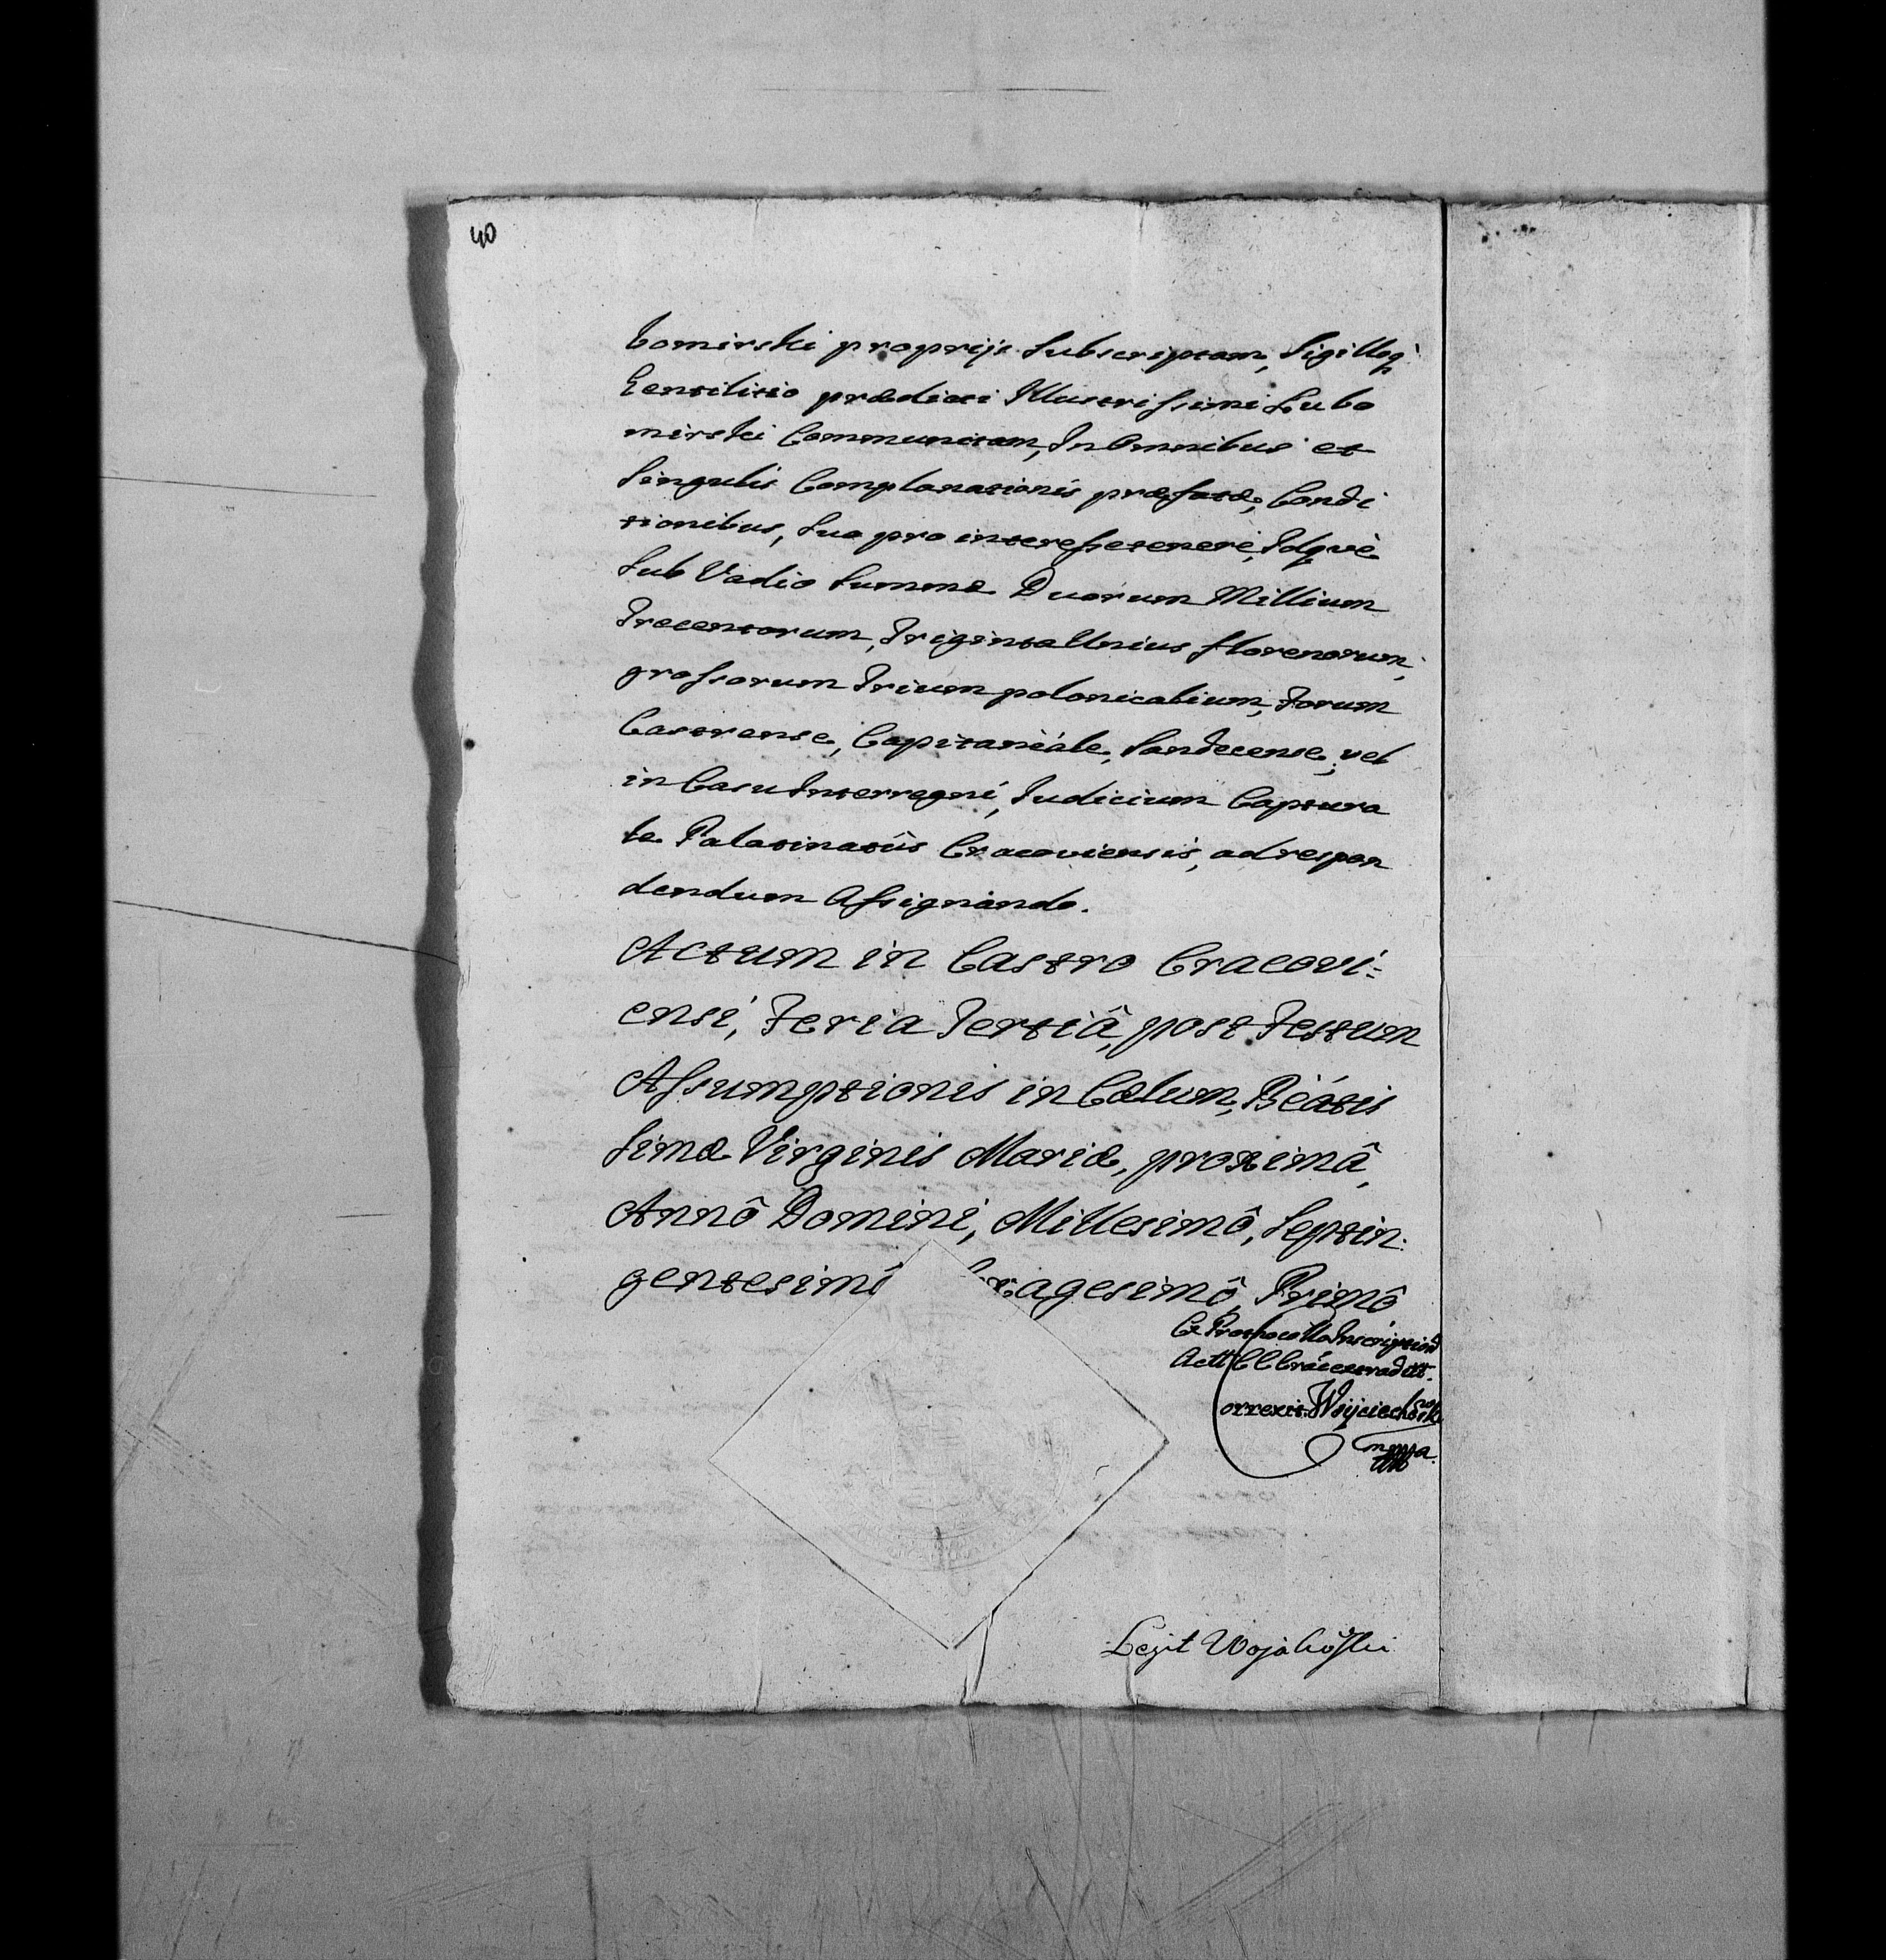 40
bomirski proprijs subscriptam, Sigilloq̀
Gentilitio prædicti Illustrissimi Lubo
mirski Communitam, In Omnibus et
Singulis Complanationis præfatæ, Condi
tionibus, Sua pro interesse teneri, Idquè
Sub Vadio Summæ Duorum Millium
Trecentorum, Triginta Unius florenorum,
grossorum Trium polonicalium, Forum
Castrense, Capitaneále, Sandecense, vel
in Casu Interregni, Iudicium Captura
le Palatinatûs Cracoviensis, ad respon
dendum Assignando.
Actum in Castro Cracovi=
ensi, Feria Tertiâ, post Festum
Assumptionis in Cælum, Beátis
simæ Virginis Mariæ, proximâ,
Annô Domini, Millesimô, Septin
gentesimô xagesimô, Primô
Ex Prothocollo Inscription
Actt CC Crac extradtt.
orrexit Woyciechowski
mppa
Legit Wojakoski